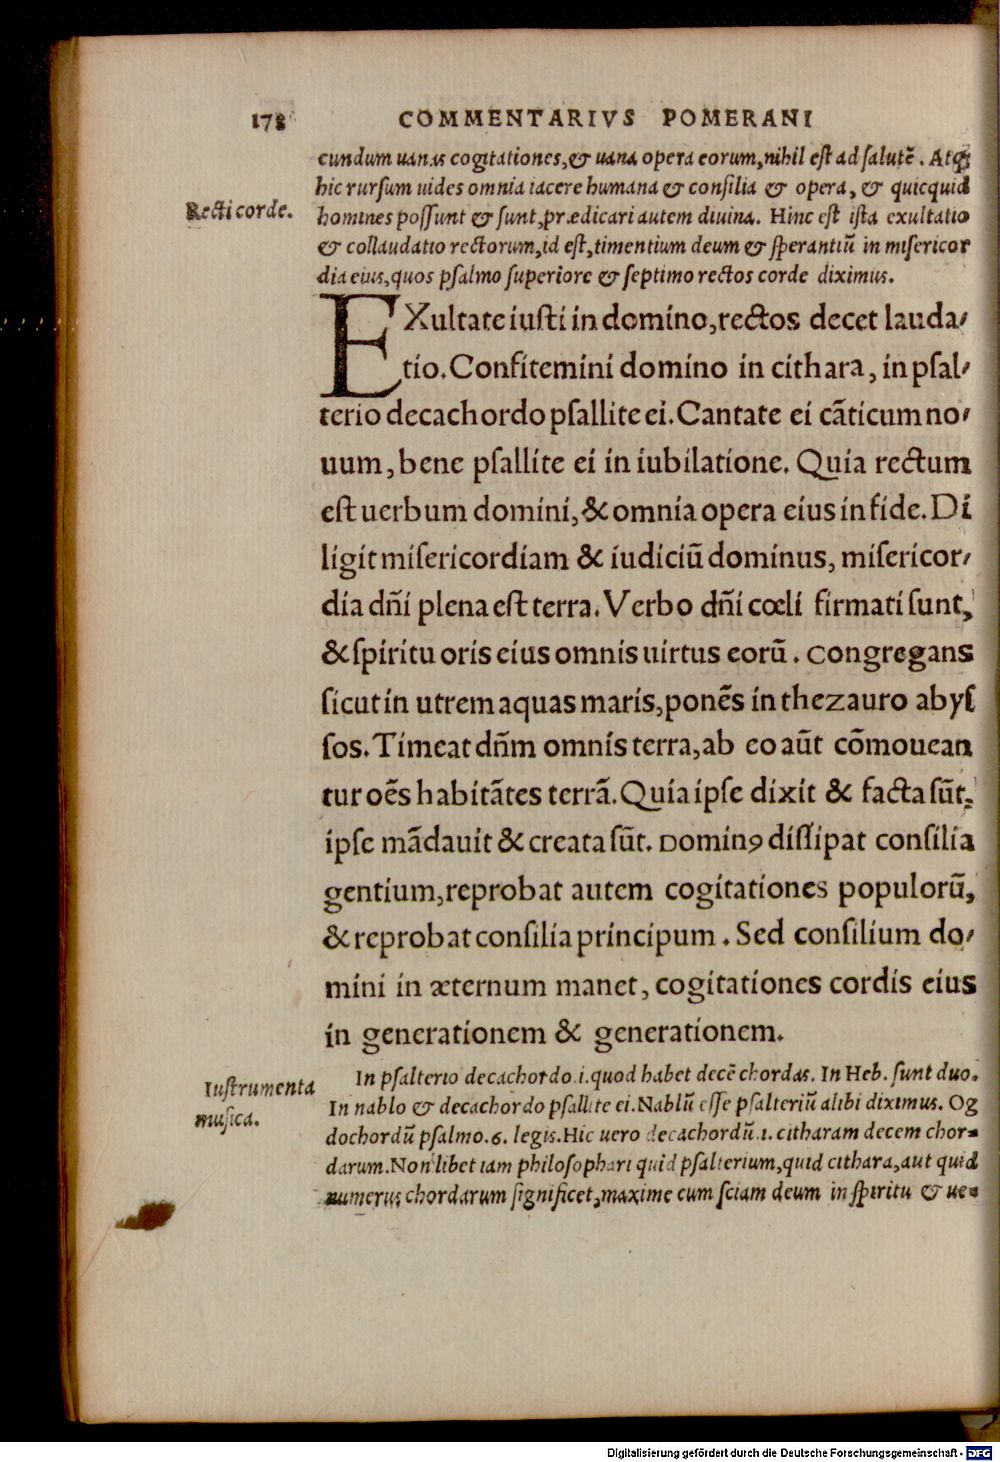 178 COMMENTARIVS POMERANI
cundum uanas cogitationes, & uana opera eorum, nihil est ad salutē. Atq;
hic rursum uides omnia iacere humana & consilia & opera, & quicquid
Recti corde.
homines possunt & sunt, prædicari autem diuina. Hinc est ista exultatio
& collaudatio rectorum, id est, timentium deum & sperantiū in misericor
dia eius, quos psalmo superiore & septimo rectos corde diximus.
EXultate iusti in domino, rectos decet lauda/
tio. Confitemini domino in cithara, in psal/
terio decachordo psallite ei. Cantate ei cāticum no/
uum, bene psallite ei in iubilatione. Quia rectum
est uerbum domini, & omnia opera eius in fide. Di
ligit misericordiam & iudiciū dominus, misericor/
dia dñi plena est terra. Verbo dñi cœli firmati sunt,
& spiritu oris eius omnis uirtus eorū. Congregans
sicut in utrem aquas maris, ponēs in thezauro abys
sos. Timeat dñm omnis terra, ab eo aūt cōmouean
tur oēs habitātes terrā. Quia ipse dixit & facta sūt,
ipse mādauit & creata sūt. Dominꝰ dissipat consilia
gentium, reprobat autem cogitationes populorū,
& reprobat consilia principum. Sed consilium do/
mini in æternum manet, cogitationes cordis eius
in generationem & generationem.
Iustrumenta
musica.
In psalterio decachordo .i. quod habet decē chordas. In Heb. sunt duo.
In nablo & decachordo psallite ei. Nablū esse psalteriū alibi diximus. Og
dochordū psalmo .6. legis. Hic uero decachordū .i. citharam decem chor-
darum. Non libet iam philosophari quid psalterium, quid cithara, aut quid
numerus chordarum significet, maxime cum sciam deum in spiritu & ue-
Digitalisierung gefördert durch die Deutsche Forschungsgemeinschaft - DFG